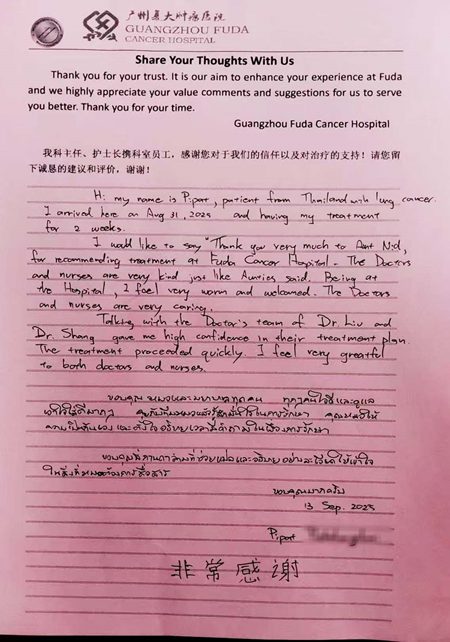 广州复大肿瘤医院
GUANGZHOU FUDA
CANCER HOSPITAL
Share Your Thoughts With Us
Thank you for your trust. It is our aim to enhance your experience at Fuda
and we highly appreciate your value comments and suggestions for us to serve
you better. Thank you for your time.
Guangzhou Fuda Cancer Hospital
我科主任、护士长携科室员工，感谢您对于我们的信任以及对治疗的支持！请您留
下诚恳的建议和评价，谢谢！
Hi my name is Piport, patient from Thailand with lung cancer.
I arrived here on Aug 31, 2025 and having my treatment
for 2 weeks.
I would like to say "Thank you very much to Aunt Nid,
for recommending treatment at Fuda Cancer Hospital. The Doctors
and nurses are very kind just like Aunties said. Being at
the Hospital, I feel very warm and welcomed. The Doctors
and nurses are very caring.
Talking with the Doctor's team of Dr. Liu and
Dr. Shang gave me high confidence in their treatment plan.
The treatment proceeded quickly. I feel very greatful
to both doctors and nurses.
ขอบคุณ หมอและพยาบาลทุกคน ทุกคนใจดีและดูแล
เอาใจใส่ดีมากๆ
ขอบคุณ
ขอบคุณมากครับ
13 Sep. 2025
Piport
非常感谢